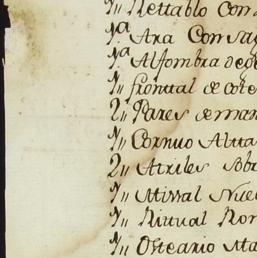 1,, Rettablo Con
1,ª Ara Consag
1,ª Alfombra de
1,, frontal de cote
2,, Pares de man
1,, Cornuo Alta
2,, Atriles sob
1,, Missal Nue
1,, Rittual Rom
1,, Osteario